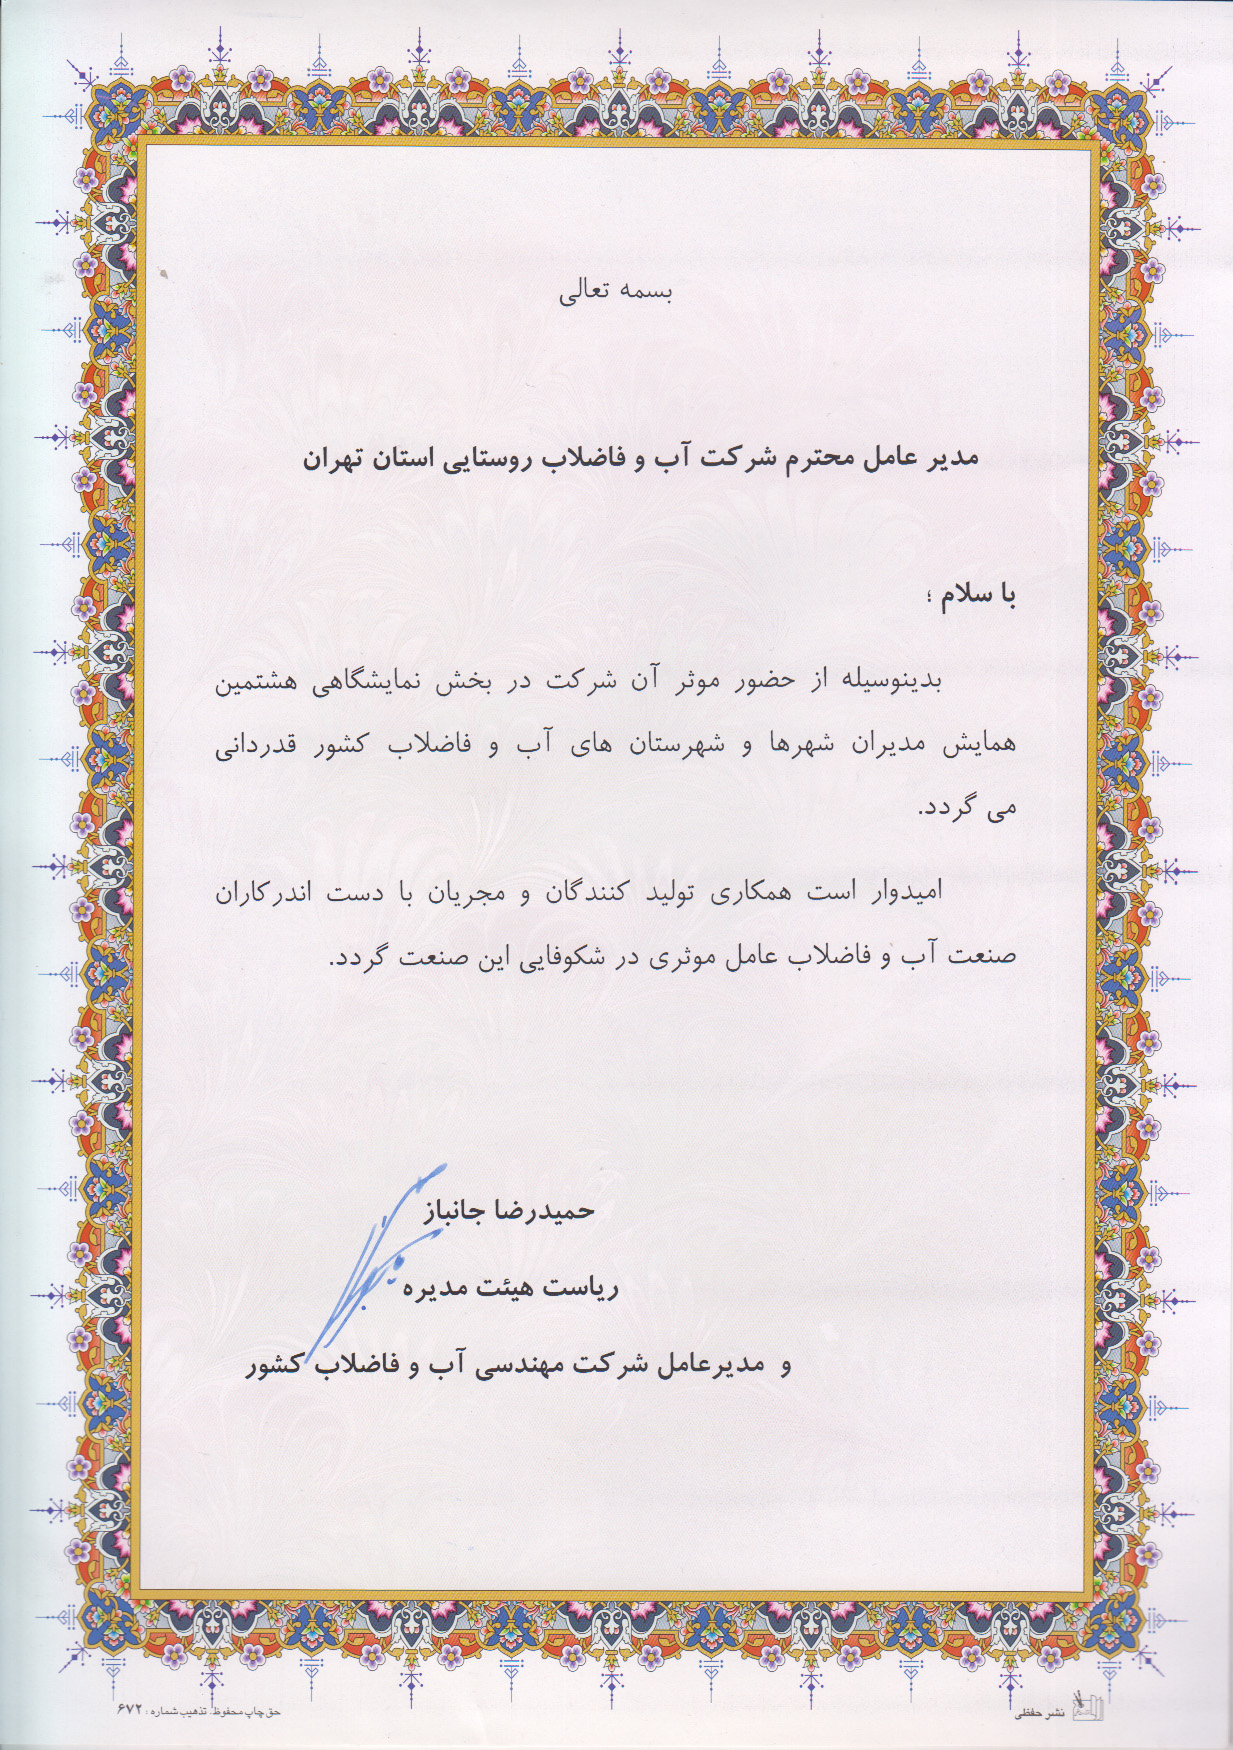 بسمه تعالی
مدیر عامل محترم شرکت آب و فاضلاب روستایی استان تهران
با سلام ؛
بدینوسیله از حضور موثر آن شرکت در بخش نمایشگاهی هشتمین
همایش مدیران شهرها و شهرستان های آب و فاضلاب کشور قدردانی
می گردد.
امیدوار است همکاری تولید کنندگان و مجریان با دست اندرکاران
صنعت آب و فاضلاب عامل موثری در شکوفایی این صنعت گردد.
حمیدرضا جانباز
ریاست هیئت مدیره
و مدیرعامل شرکت مهندسی آب و فاضلاب کشور
نشر حفظی
حق چاپ محفوظ. تذهیب شماره : ۶۷۲